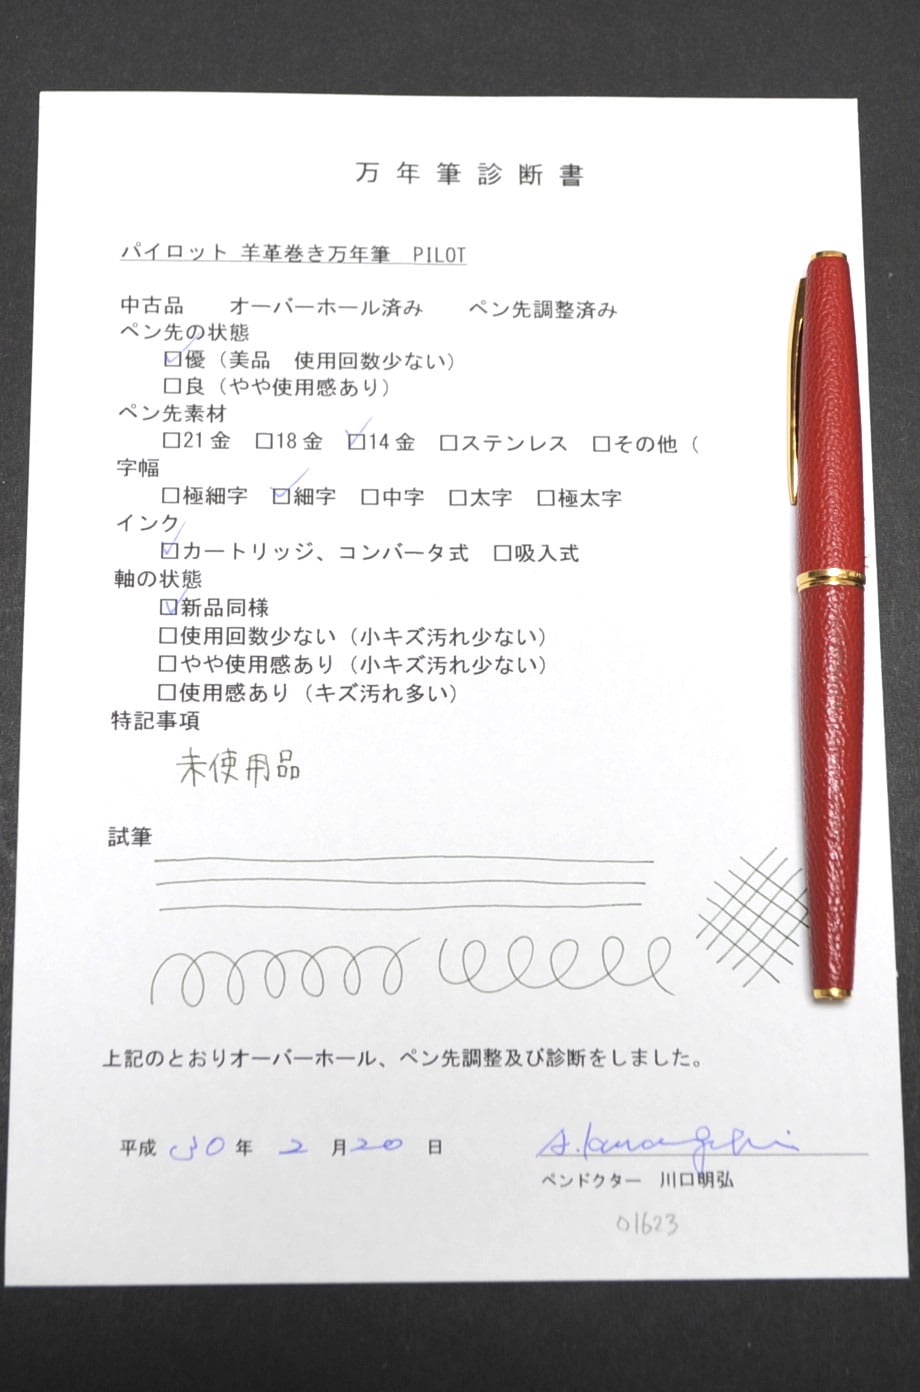 万年筆診断書
パイロット 羊革巻き万年筆 PILOT
中古品 オーバーホール済み ペン先調整済み
ペン先の状態
☑優（美品 使用回数少ない）
□良（やや使用感あり）
ペン先素材
□21金 □18金 ☑14金 □ステンレス □その他（
字幅
□極細字 ☑細字 □中字 □太字 □極太字
インク
☑カートリッジ、コンバータ式 □吸入式
軸の状態
☑新品同様
□使用回数少ない（小キズ汚れ少ない）
□やや使用感あり（小キズ汚れ少ない）
□使用感あり（キズ汚れ多い）
特記事項
未使用品
試筆
上記のとおりオーバーホール、ペン先調整及び診断をしました。
平成 30 年 2 月 20 日
ペンドクター 川口明弘
01623